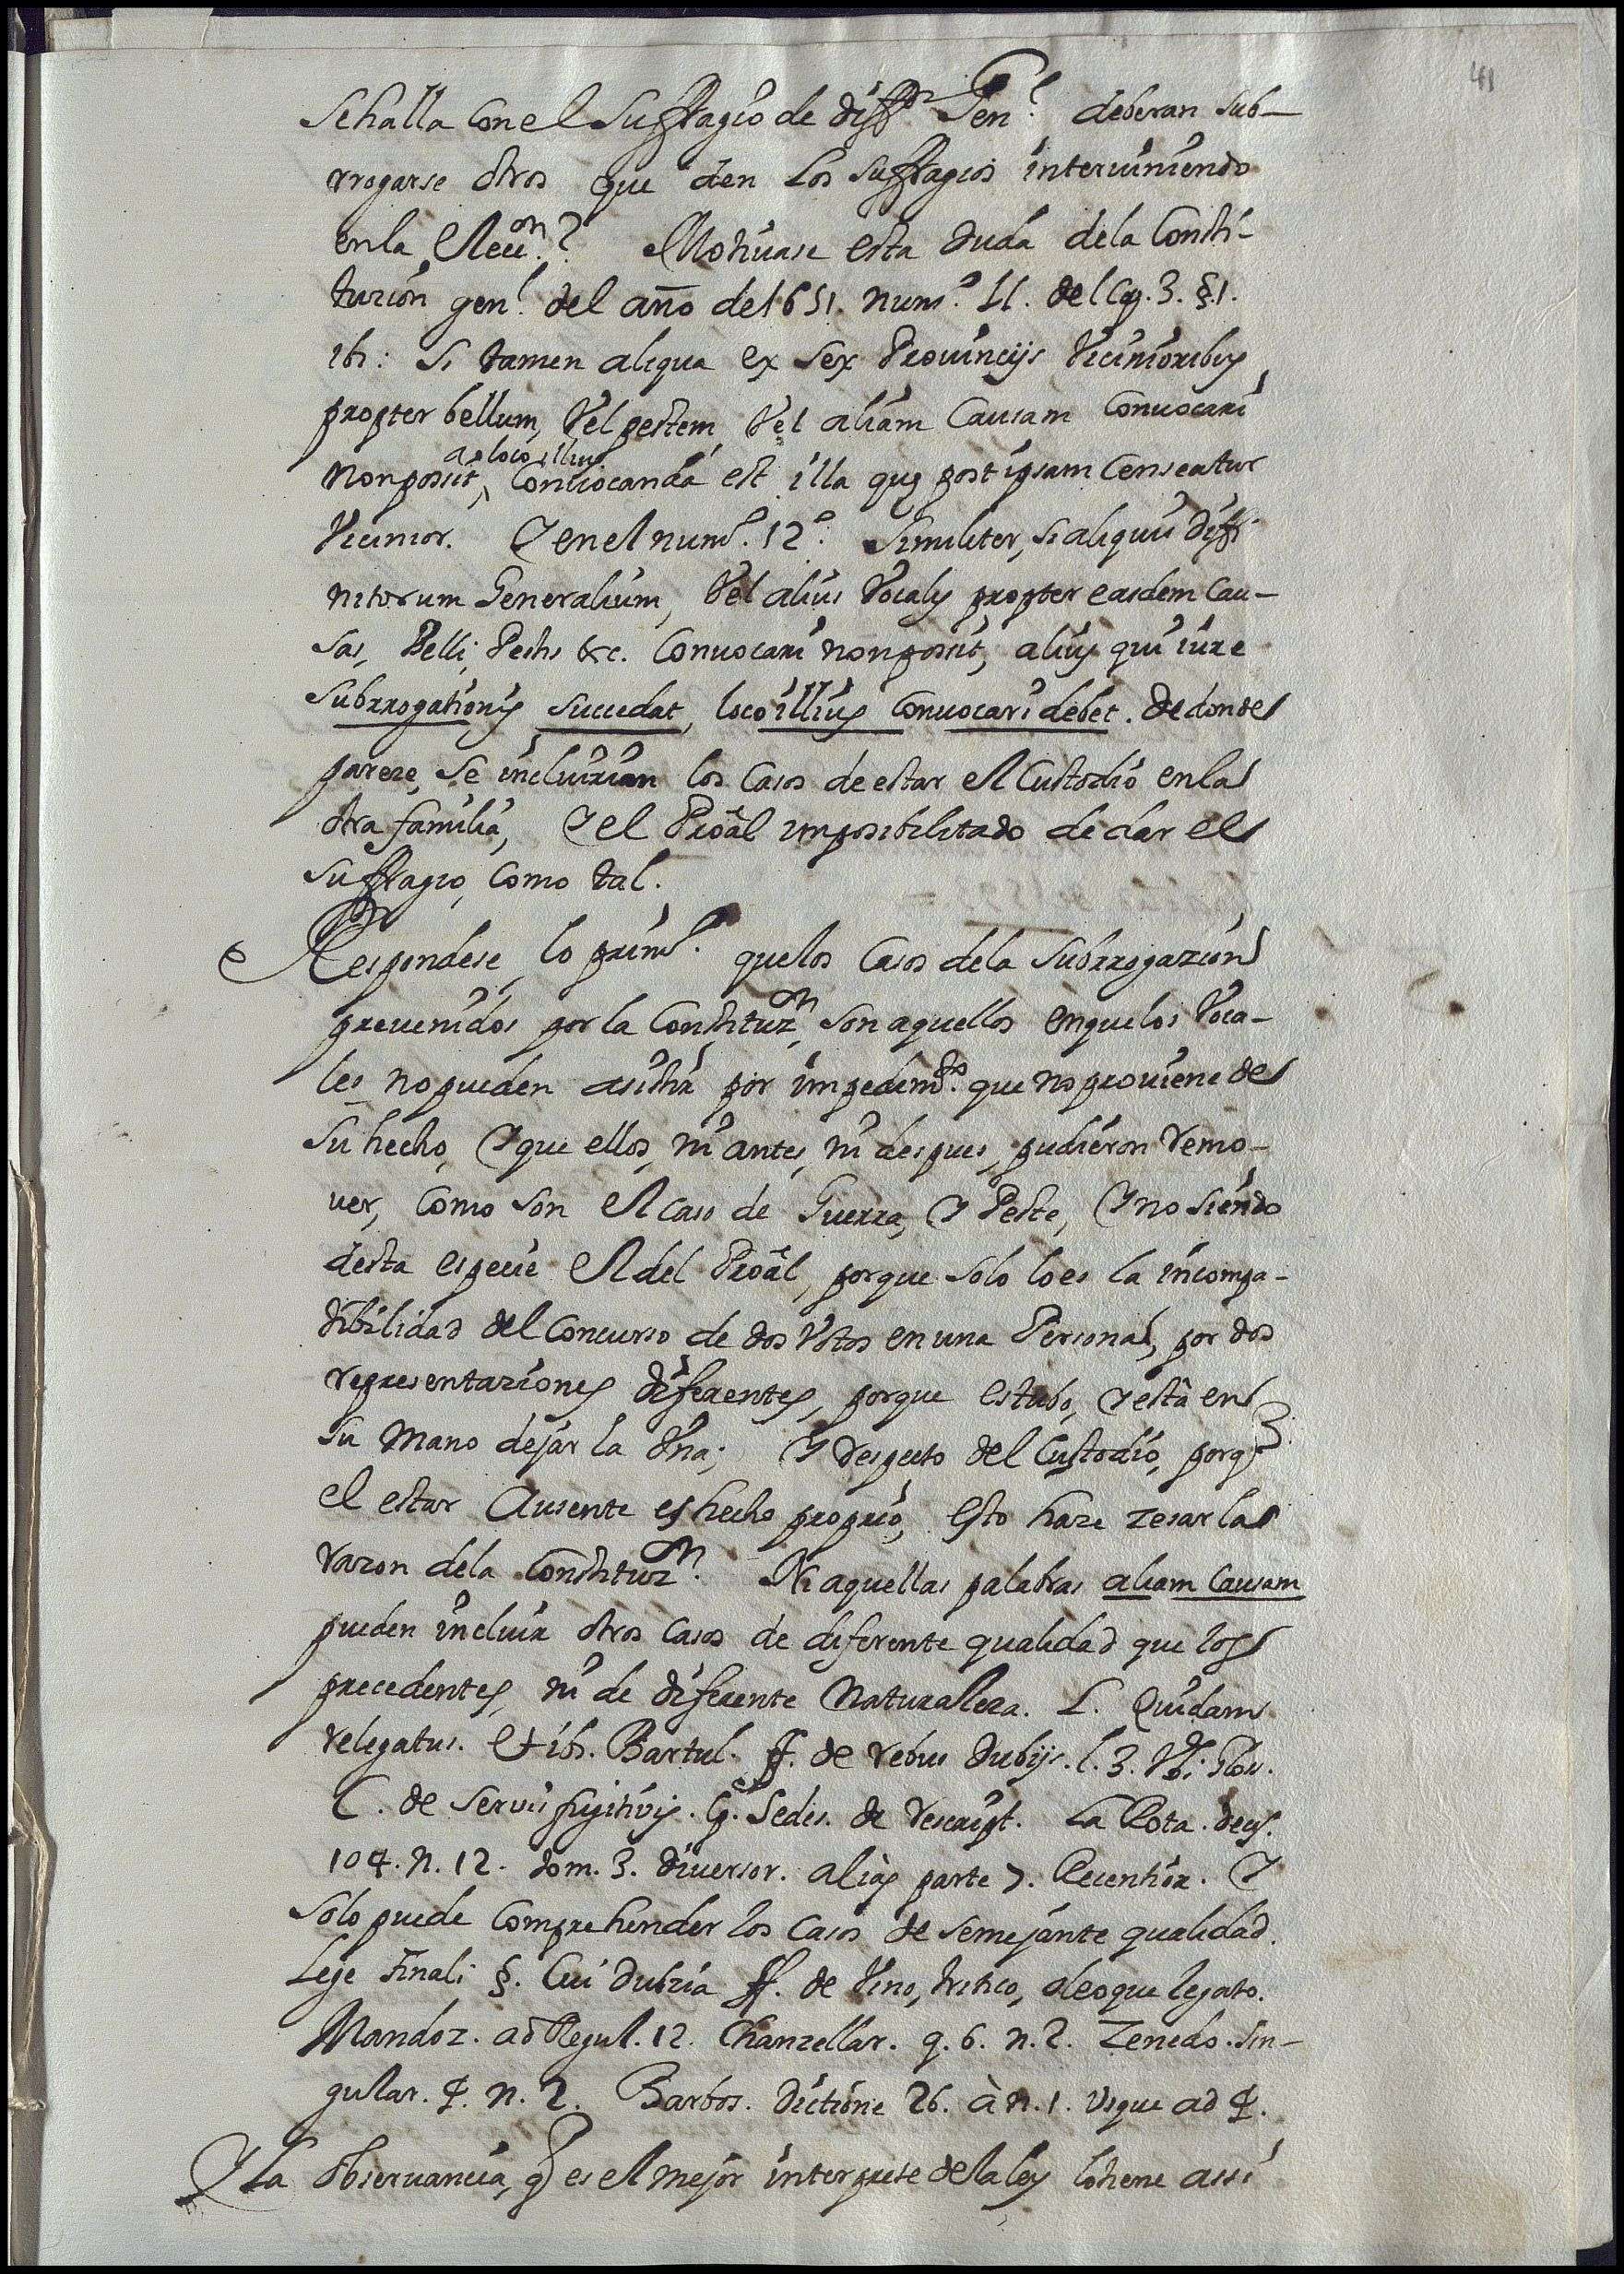 41
Sehalla con el Suffragio de diffor Genl deberan sub-
rrogarse otros que den los suffragios interuiniendo
en la Elecon? Motiuase esta duda dela Consti-
tuzion genl. del año de 1651. numo. 11. del Cap. 3. §.1.
ibi: Si tamen aliqua ex sex Prouincijs Vicinioribus
propter bellum, Vel pestem, Vel aliam Causam Conuocari
non possit, Conuocanda est illa que post ipsam Censeatur
a loco illius
Vicinior. Y en el numo. 12º. Similiter, si aliquis diffi-
nitorum Generalium, Vel alius Vocalis propter easdem Cau-
sas, Belli, Pestis &c. Conuocari non possit, alius qui iure
Subrrogationis succedat, loco illius Conuocari debet. de donde
pareze, se incluirian los Casos de estar el Custodio en la
otra familia, Y el Proâl imposibilitado de dar el
Suffragio, Como tal.
Respondese, lo primo. que los Casos dela Subrrogazion
preuenidos por la Constituzn, Son aquellos en que los Voca-
les no pueden asistir por impedimto. que no prouiene de
Su hecho, Y que ellos, ni antes, ni despues, pudieron remo-
uer, Como Son el caso de Guerra, Y Peste, Y no siendo
desta especie el del Proâl, porque solo lo es la incompa-
tibilidad del Concurso de dos Votos en una Persona, por dos
representaziones diferentes, porque estubo, Y està en
su mano dejar la Vna; Y respecto del Custodio, porq
el estar Ausente es hecho proprio, esto haze zesar la
razon dela Constituzn. Ni aquellas palabras aliam Causam
pueden incluir otros Casos de diferente qualidad que los
precedentes, ni de diferente Naturalleza. L. Quidam
relegatus. et ibi. Bartul. ff. de rebus dubijs. l. 3. Vbi Glos.
C. de Seruis fugitiuis. Cp. Sedes. de rescript. La Rota. decis.
104. n. 12. tom. 3. diuersor. aliàs parte 7. Recentior. Y
Solo puede Comprehender los Casos de semejante qualidad.
Lege Finali §. Cui dulzia ff. de Vino, tritico, oleoque legato.
Mandoz. ad Regul. 12. Chanzellar. q. 6. n. 2. Zenedo. Sin-
gular. 4. n. 2. Barbos. dictione 26. à n. 1. Vsque ad 4.
Y la Obseruancia, q es el mejor interprete dela ley lo tiene assi